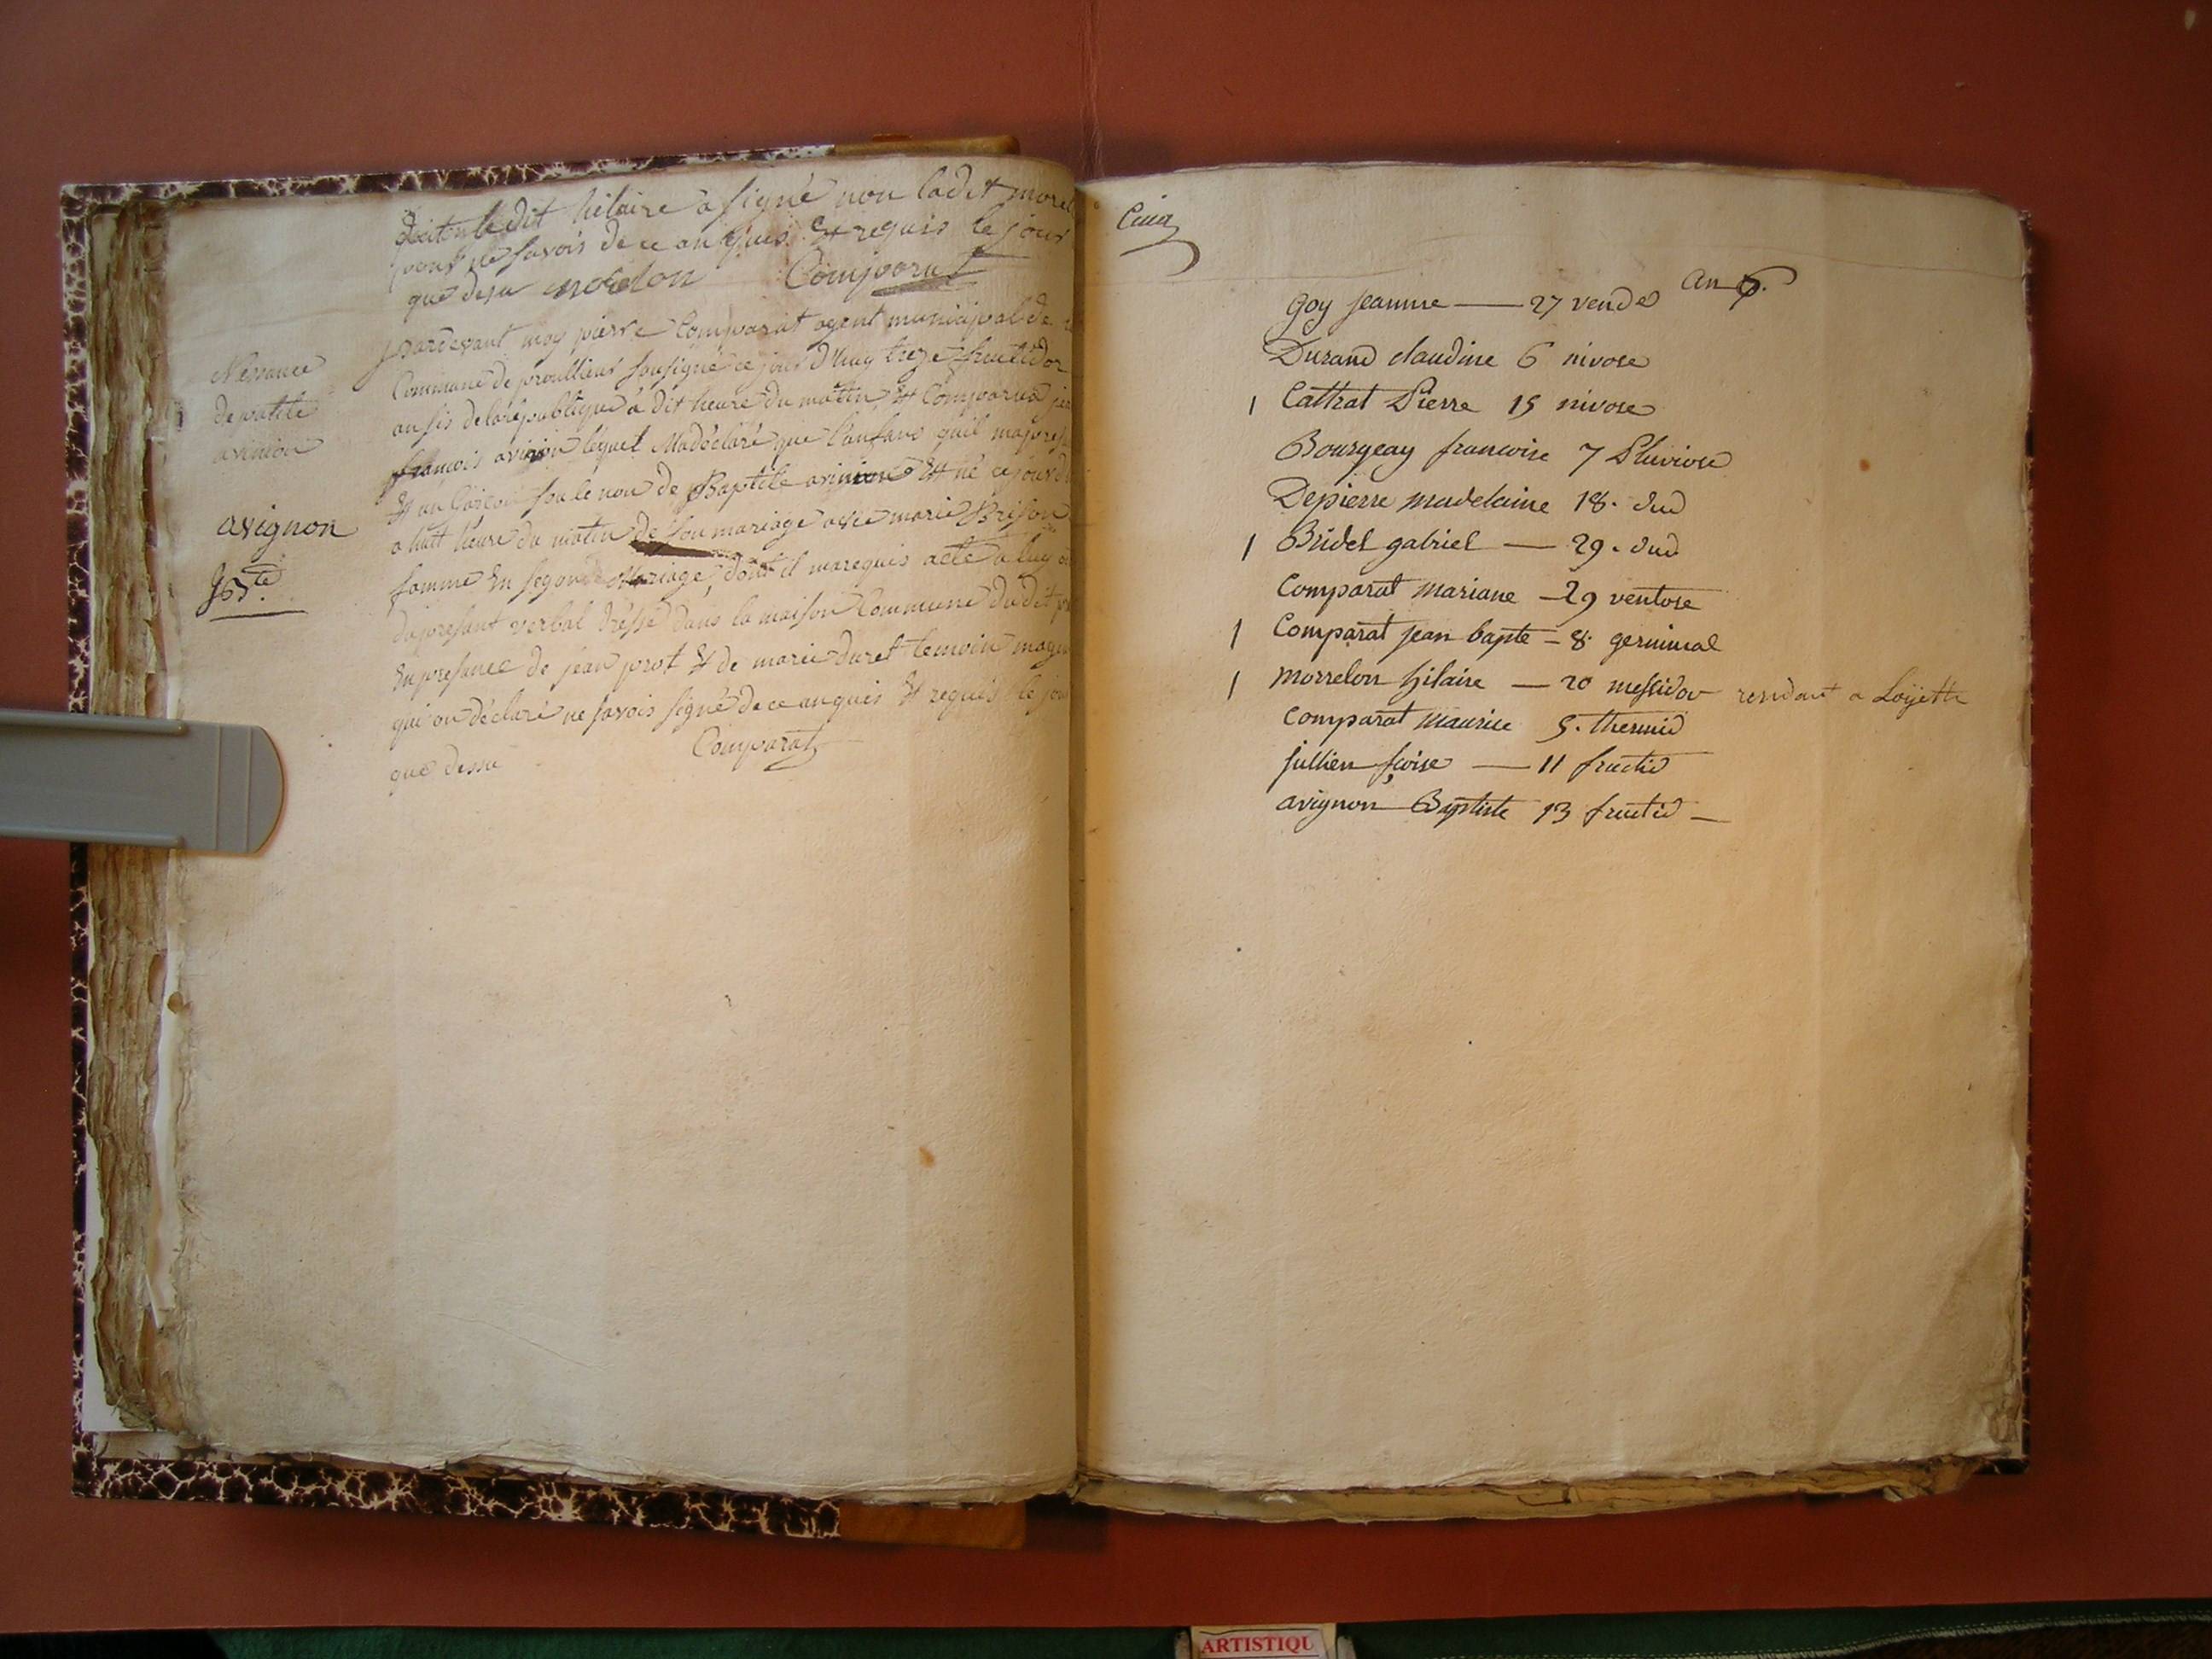 ledit hilaire a signé non ladit morel
pour ne savois de ce anquis Et requis le jour
que desu morelon Comparat
Nessance
de patite
avinion
avignon
Bte.
pardevant moy pierre Comparat agent municipal de
Commune de proullieut sousigne ce jour d'huy treze fructidor
an sis de la republique a dit heure du matin Et Comparu
francois avinion lequel Madéclaré que l'anfans quil
sou le non de Baptite avinion Et né ce jour
a huit heure du matin de sou mariage avec marie Brison
famme En segonde Mariage, dont il marequis acte a luy
du presant verbal dressé dans la maison Commune dudit
En presance de jean prot Et de marie duret temoin
qui on déclaré ne savois signé de ce anquis Et requis le jour
que dessu Comparat
Cinq
an 6.
Goy jeanne — 27 vende
Durand claudine 6 nivose
1 Cattrat Pierre 15 nivose
Bourgeay francoise 7 Pluviose
Depierre madelaine 18. dud
1 Bridel gabriel — 29. dud
Comparat mariane — 29 ventose
1 Comparat jean bapte — 8. germinal
1 morrelon hilaire — 20 messidor residant a Loyette
Comparat maurice 5. thermid
jullien fçoise — 11 fructid
avignon Baptiste 13 fructid —
ARTISTIQU